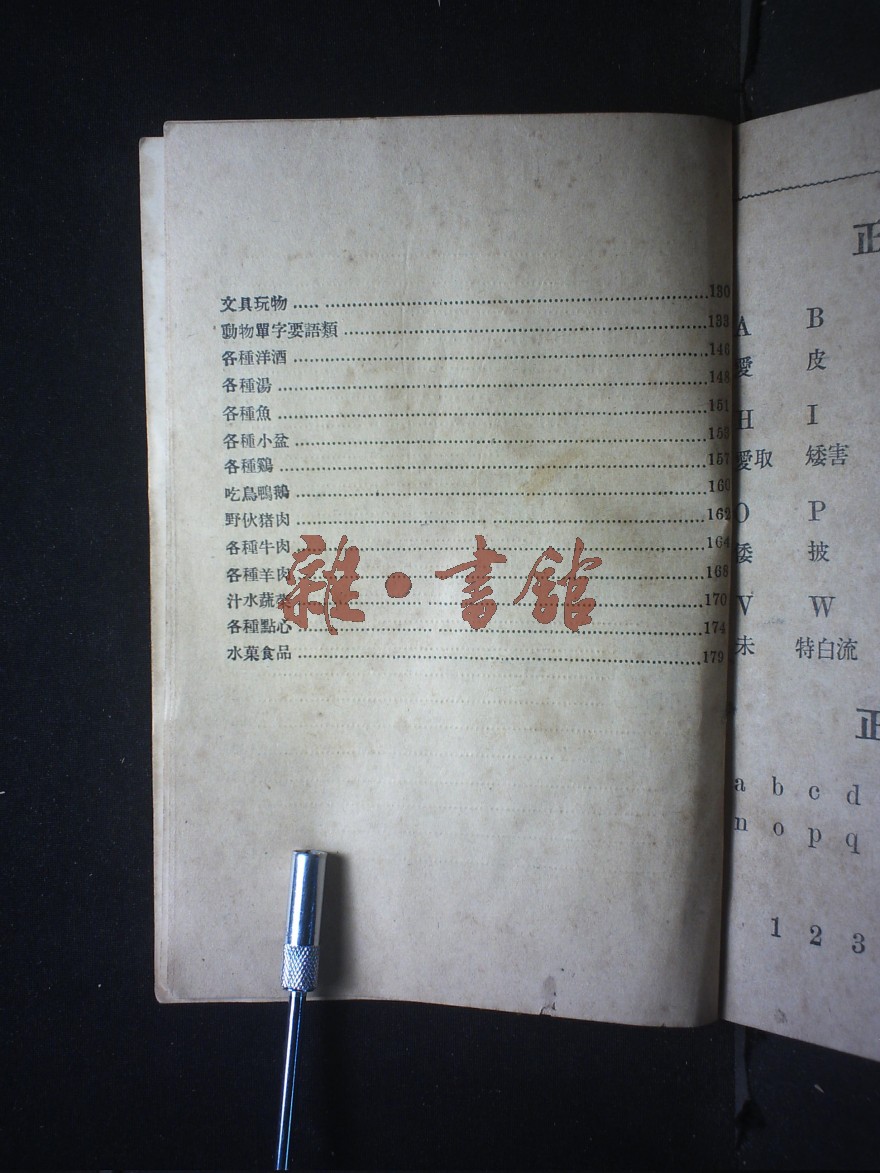 文具玩物…… ……130
動物單字要語類……133
各種洋酒……146
各種湯……148
各種魚……151
各種小盆……153
各種鷄……157
吃鳥鴨鵝……160
野伙猪肉……162
各種牛肉……164
各種羊肉……168
汁水蔬菜……170
各種點心……174
水菓食品……179
雜·書館
正
A B
愛 皮
H I
愛取 矮害
O P
委 披
V W
未 特白流
正
a b c d
n o p q
1 2 3